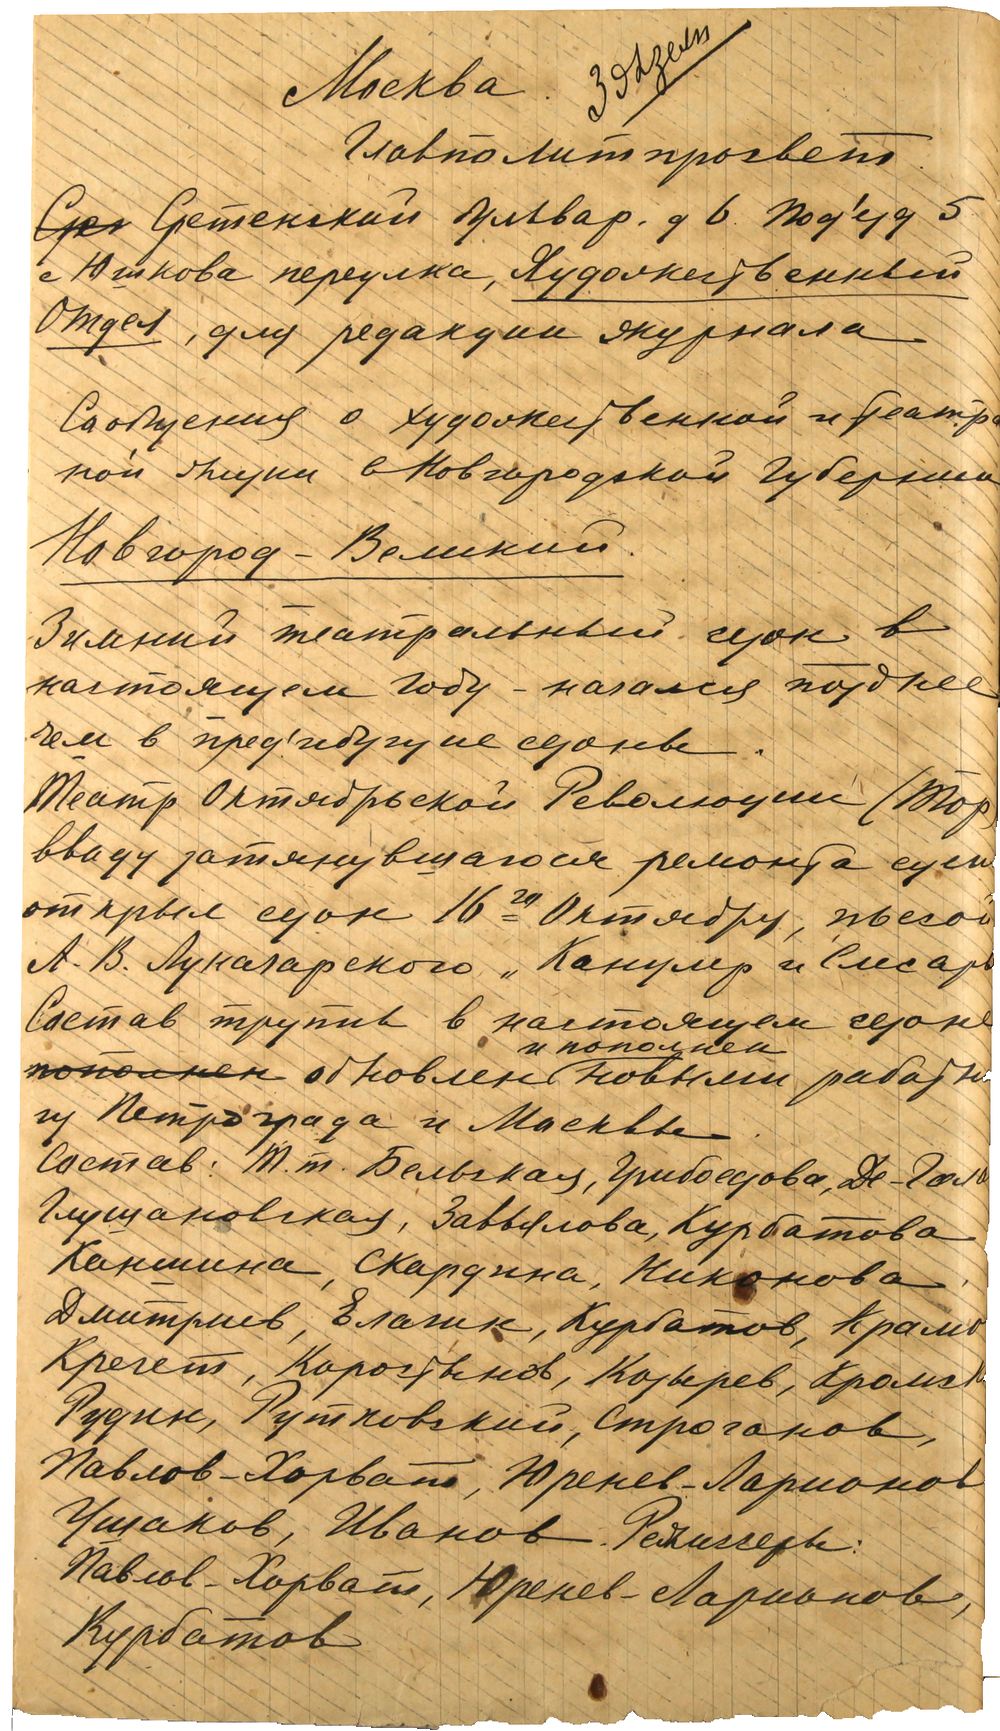 Москва
3 экзем
Главполитпросвет
Сре Сретенский бульвар. д 6. Под'езд 5
с Юшкова переулка, Художественный
Отдел, для редакции журнала
Сообщения о художественной и театра
ной жизни в Новгородской Губернии
Новгород - Великий.
Зимний театральный сезон в
настоящем году - начался позднее
чем в пред'идущие сезоны.
Театр Октябрьской Революции (Тор)
ввиду затянувшагося ремонта
открыл сезон 16го Октября, пьесой
А. В. Луначарского „Канцлер и Слесарь
Состав труппы в настоящем сезоне
и пополнен
пополнен обновлен новыми работни
из Петрограда и Москвы.
Состав: Т.т. Бельская, Грибоедова, Де-Галь
Глущановская, Завьялова, Курбатова
Ханшина, Скардина, Никонова.
Дмитриев, Елагин, Курбатов, Крамо
Кречет, Коростынов, Козырев, Кромск
Рудин, Рутковский, Строганов,
Павлов-Хорват, Юренев-Ларионов
Ушаков, Иванов. Режиссеры:
Павлов-Хорват, Юренев-Ларионов,
Курбатов